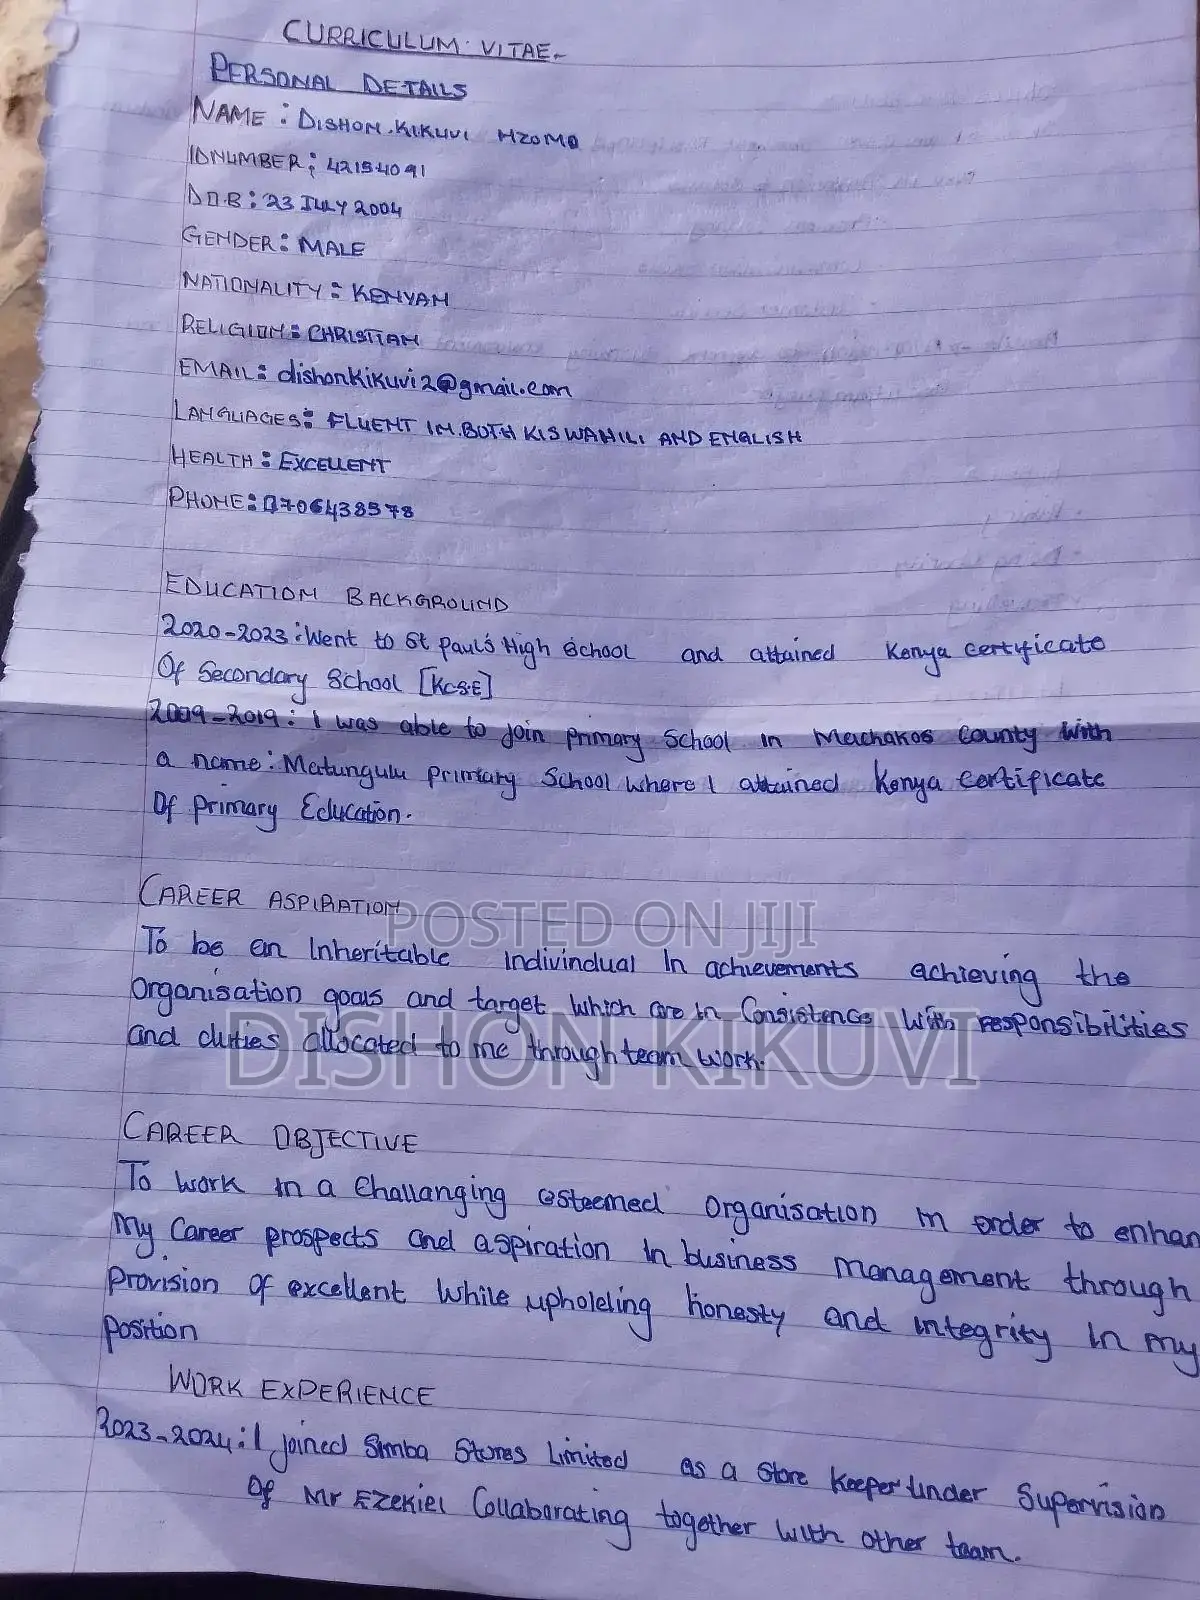 CURRICULUM VITAE
PERSONAL DETAILS
NAME: DISHON KIKUVI NZOMO
ID NUMBER: 42154091
D.O.B: 23 JULY 2004
GENDER: MALE
NATIONALITY: KENYAN
RELIGION: CHRISTIAN
EMAIL: dishonkikuvi2@gmail.com
LANGUAGES: FLUENT IN BOTH KISWAHILI AND ENGLISH
HEALTH: EXCELLENT
PHONE: 0706438578
EDUCATION BACKGROUND
2020-2023: Went to St Paul's High School and attained Kenya certificate
Of Secondary School [KCSE]
2009-2019: I was able to join primary School in Machakos County With
a name: Matungulu primary School where I attained Kenya Certificate
Of primary Education.
CAREER ASPIRATION
POSTED ON JIJI
To be an Inheritable Indivindual In achievements achieving the
Organisation goals and target which are in Consistence With responsibilities
DISHON KIKUVI
and duties allocated to me through team work.
CAREER OBJECTIVE
To work in a Challanging esteemed Organisation in order to enhan
My Career prospects and aspiration In business management through
provision Of excellent While upholding honesty and integrity In my
position
WORK EXPERIENCE
2023-2024: I joined Simba Stores Limited as a Store Keeper Under Supervision
Of Mr Ezekiel Collaborating together with other team.